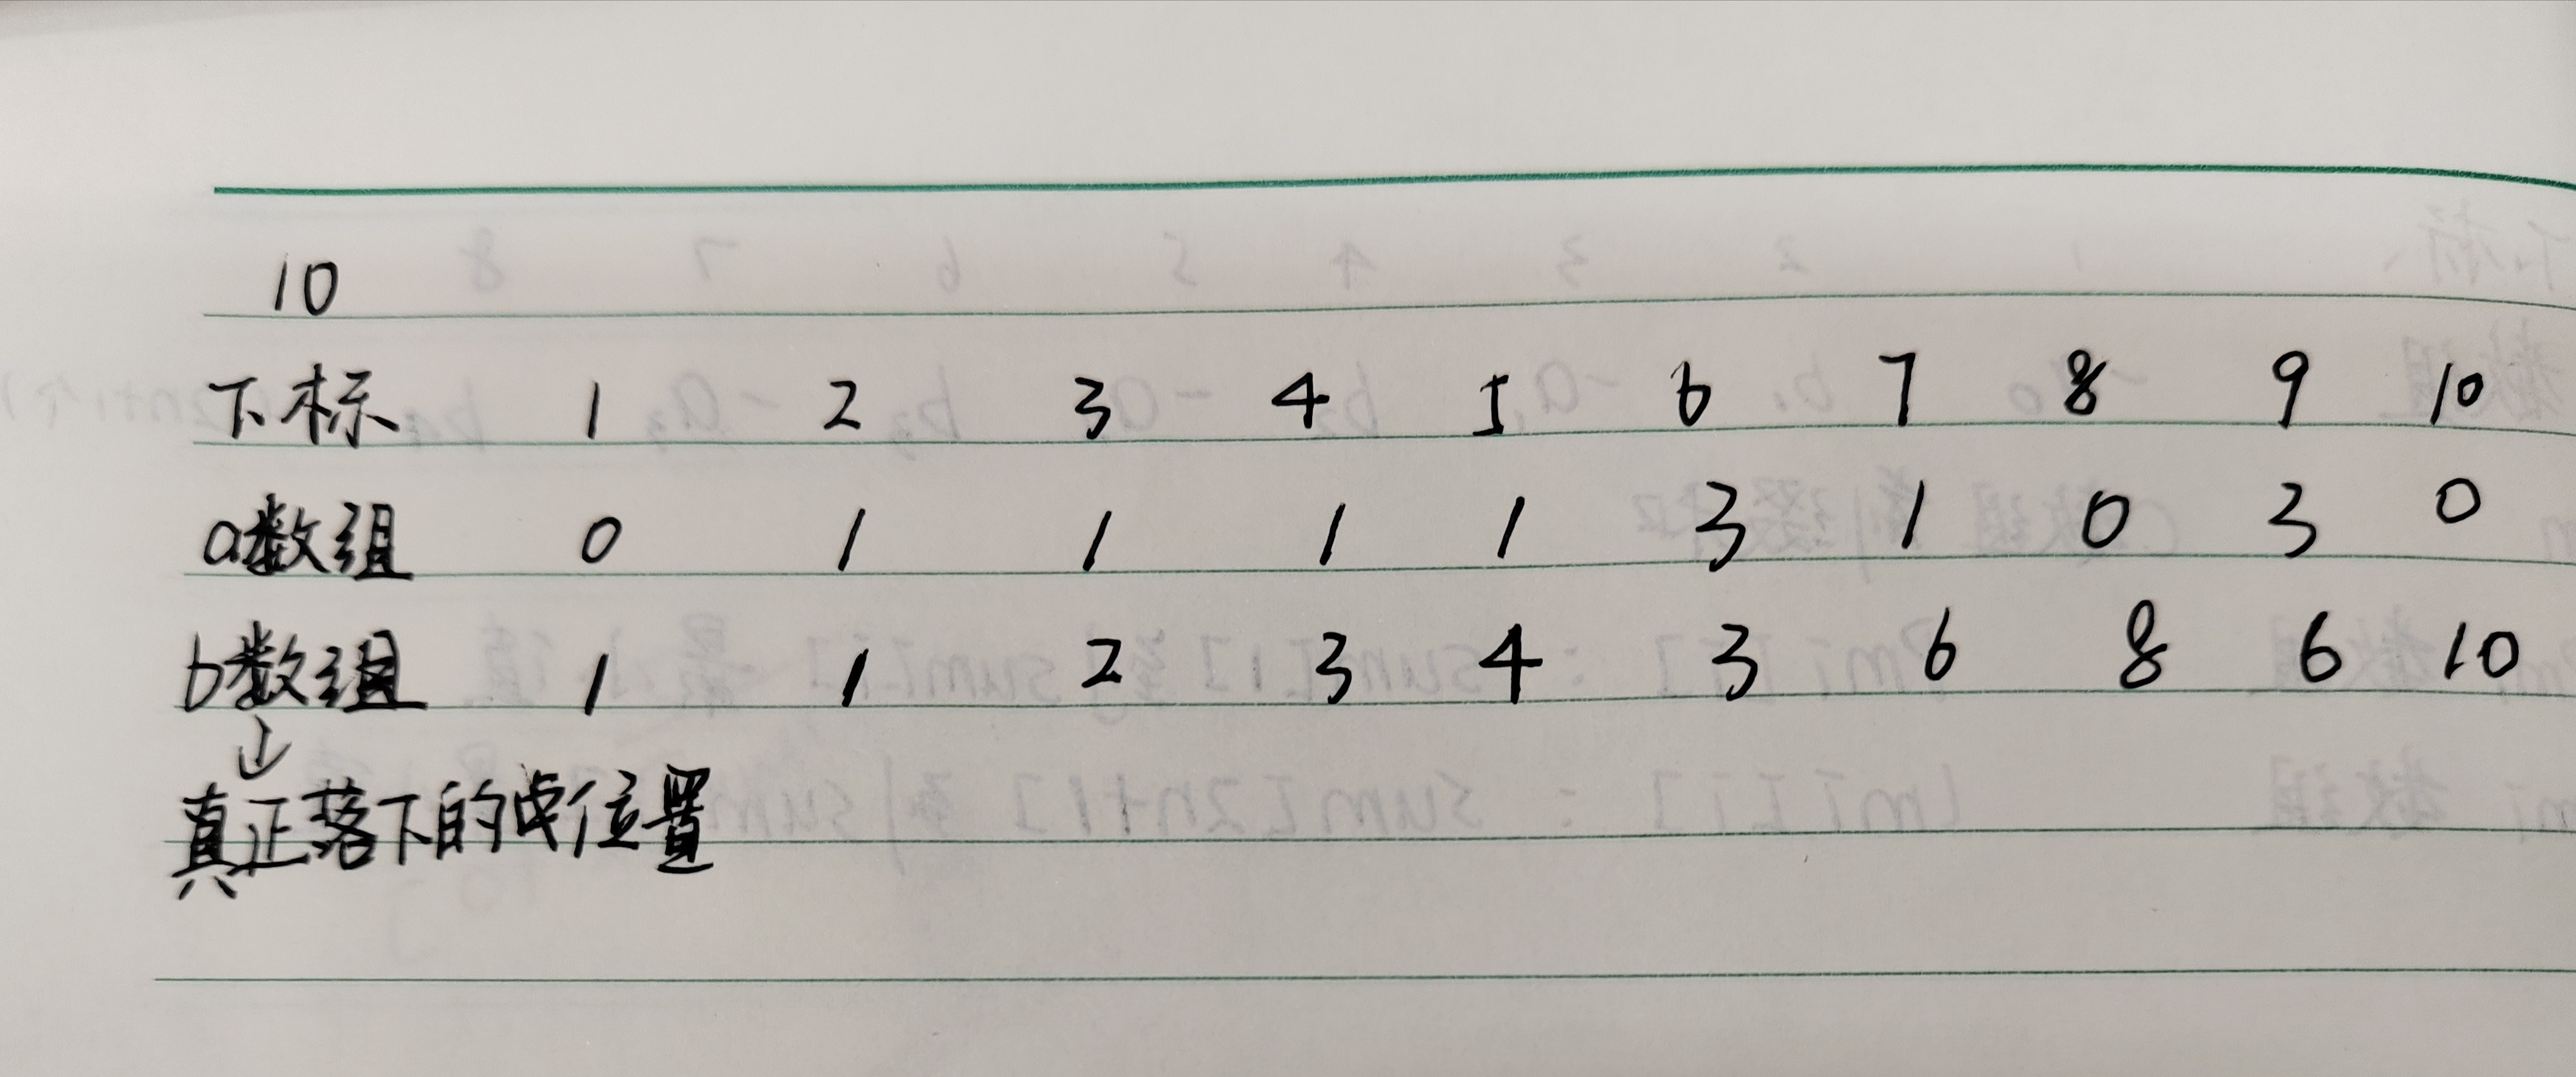 10
下标 1 2 3 4 5 6 7 8 9 10
a数组 0 1 1 1 1 3 1 0 3 0
b数组 1 1 2 3 4 3 6 8 6 10
↓
真正落下的位置